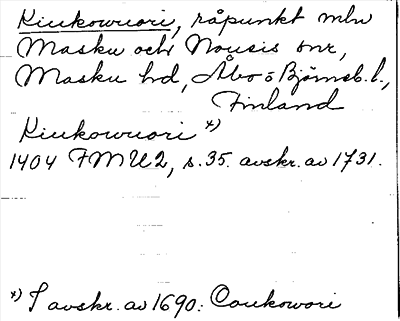 Kiukowuori, råpunkt mln
Masku och Nousis snr,
Masku hd, Åbo o Björneb. l.,
Finland
Kiukowuori *)
1404 FMU2, s. 35. avskr. av 1731.
*) I avskr. av 1690: Coukowori